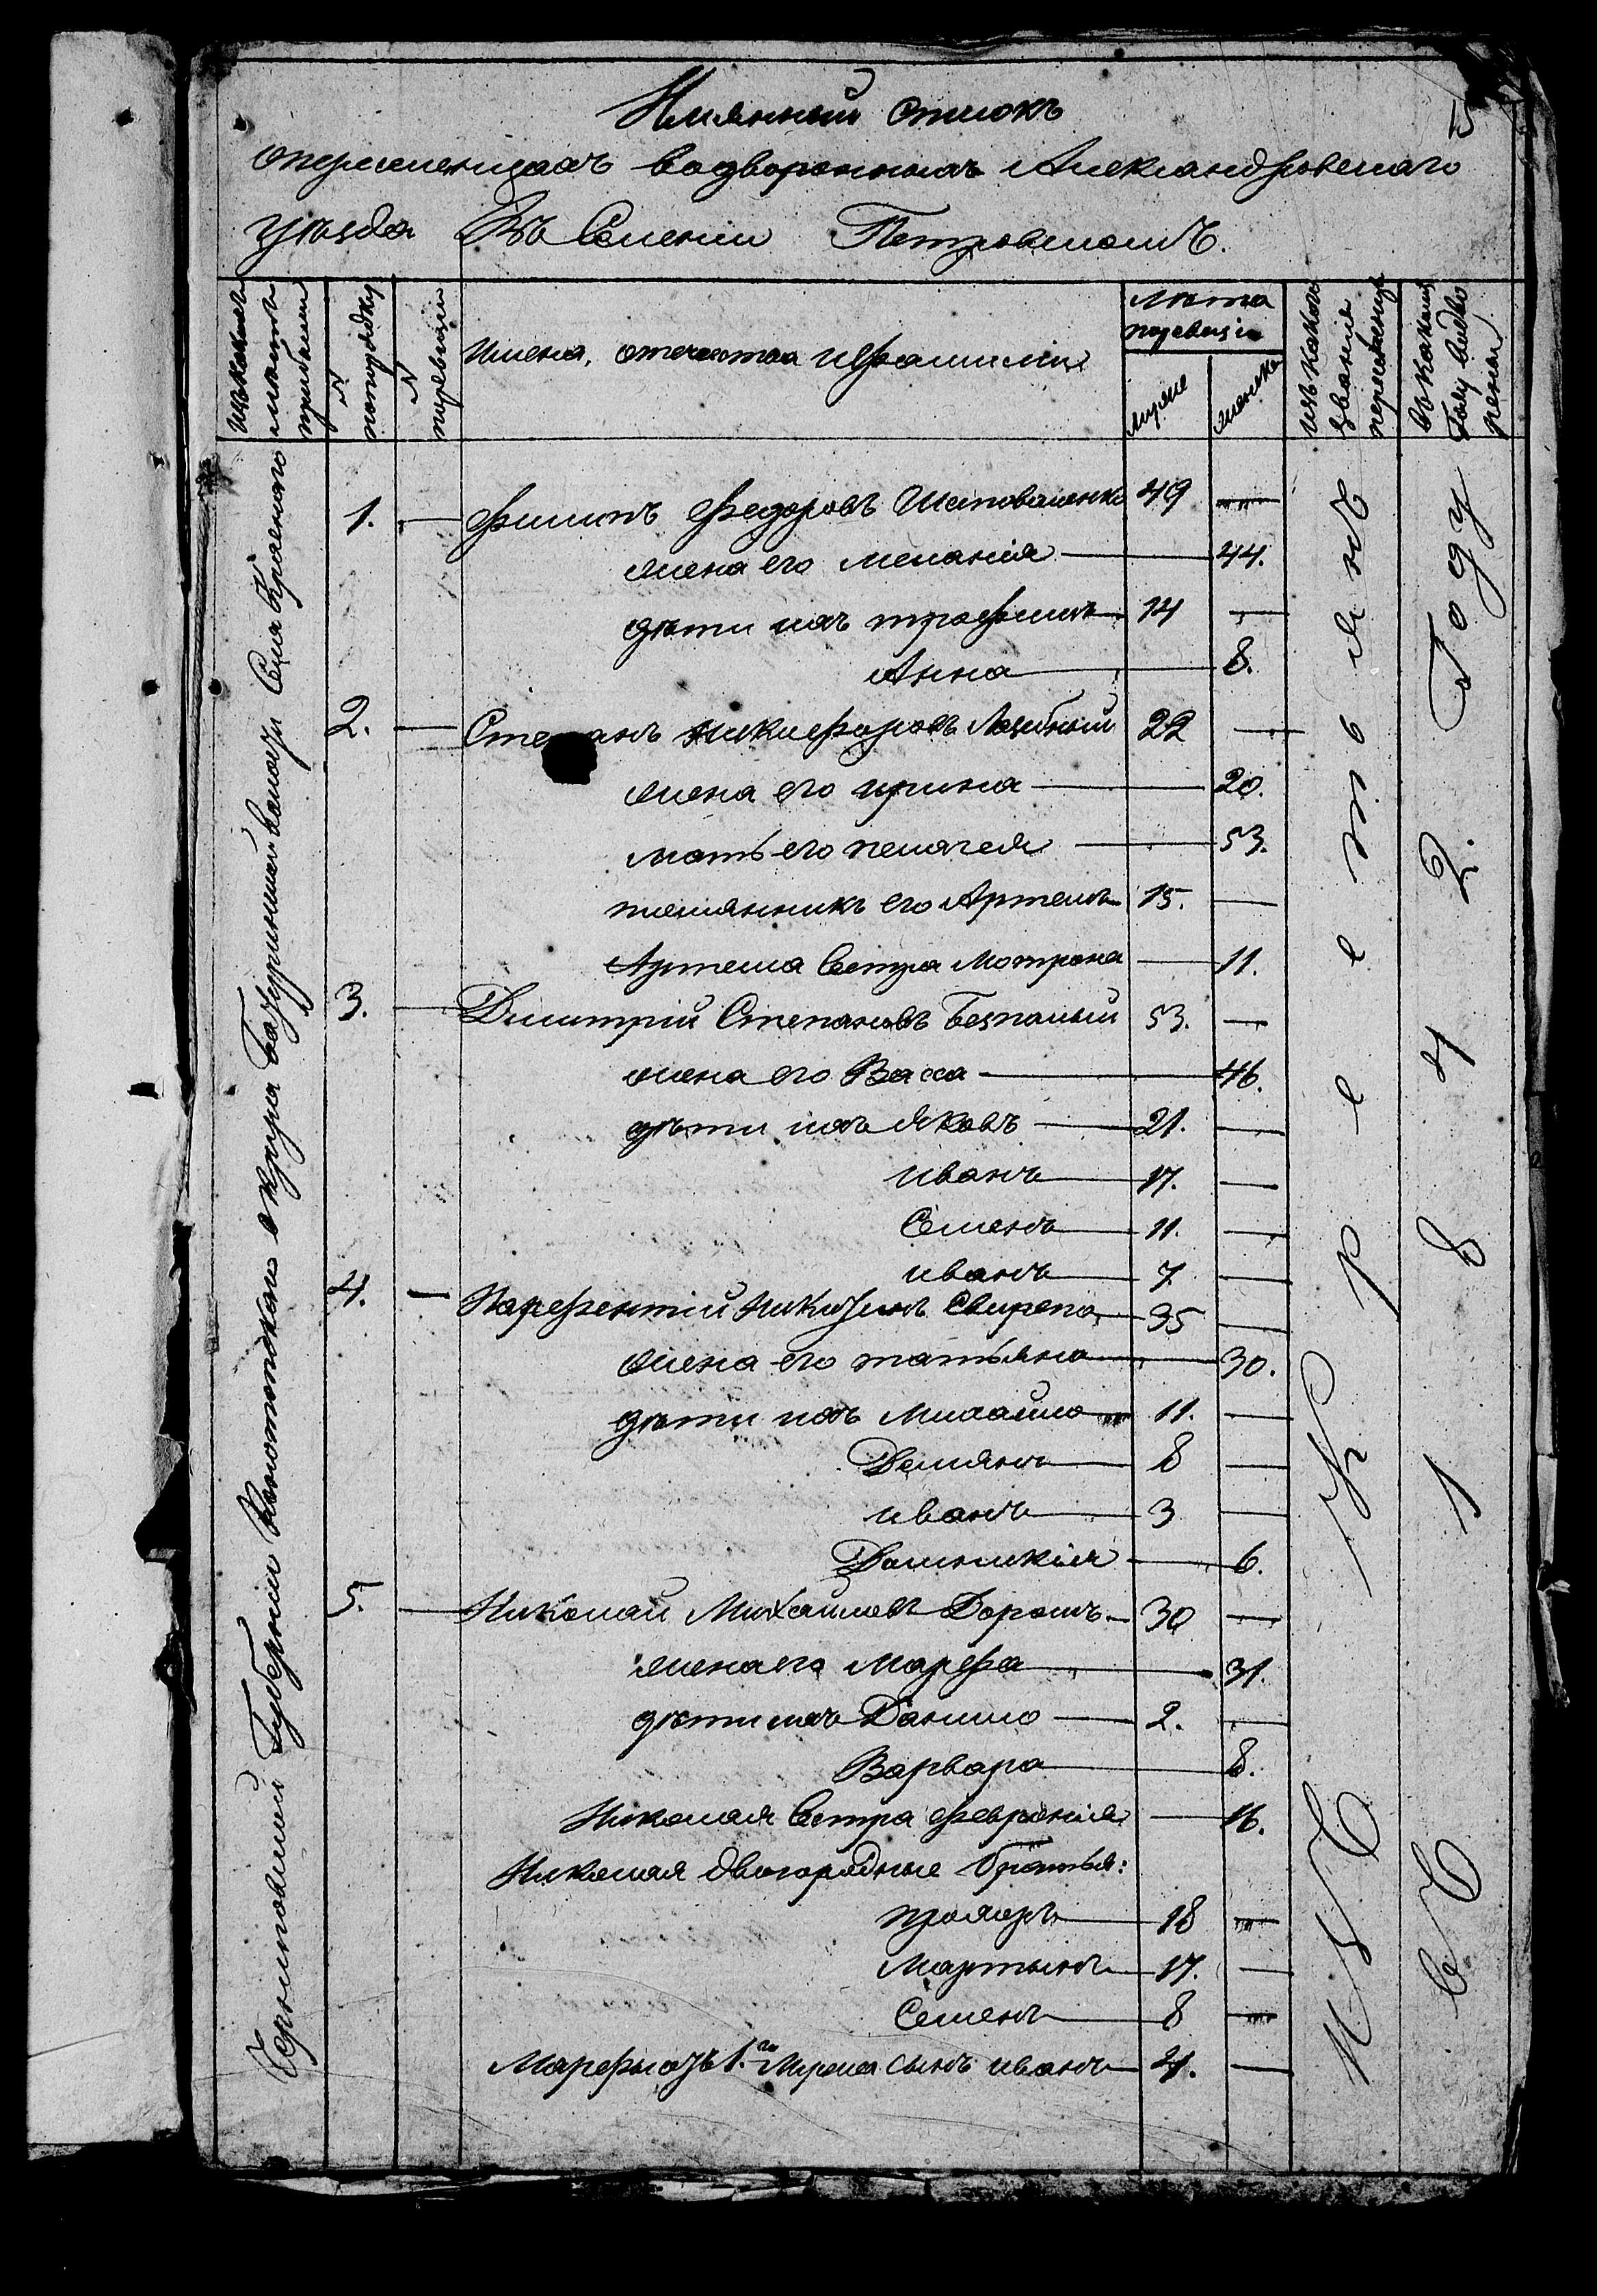 Имянный списокъ
опереселенцахъ водворенныхъ Александровскаго
уѣзда Въ Селеніи Петровскомъ.
изъ какихъ мѣстъ прибыли
№ попорядку
№ поревизіи
Имена, отечества ифамиліи
Лѣта поревизіи
мужс
женска
изъ какого званія переселенцы
въкакомъ Году водворены
Черниговской Губерніи Конотопского округа Батуринской волости Села Краснаго
1. — Филипъ Федоровъ Шаповаленко 49 —
жена его меланія — 44.
дѣти ихъ трофимъ 14 —
Анна — 8.
2. — Степанъ никифоровъ 22 —
жена его ирина — 20.
мать его пелагея — 53.
племянникъ его Артемъ 15. —
Артема Сестра Мотрона — 11.
3. — Димитрій Степановъ Безпалый 53. —
жена его Васса — 46.
дѣти ихъ яковъ — 21. —
иванъ — 17. —
Семенъ — 11. —
иванъ — 7 —
4. — Парфентій Никитинъ Свирепа 35 —
жена его татьяна — 30.
дѣти ихъ михайло 11. —
Демянъ — 8 —
иванъ — 3 —
Домникія — 6.
5. — Николай Михайловъ Дорошъ 30 —
жена его Марфа — 31.
дѣти ихъ Данило — 2. —
Варвара — 8.
Николая Сестра феврония — 16.
Николая двоюродные братья:
прохоръ — 18 —
Мартынъ — 17. —
Семенъ — 8 —
Марфы отъ 1.го Мужа сынъ иванъ 4. —
Изъ крестьянъ
въ 1842. Году